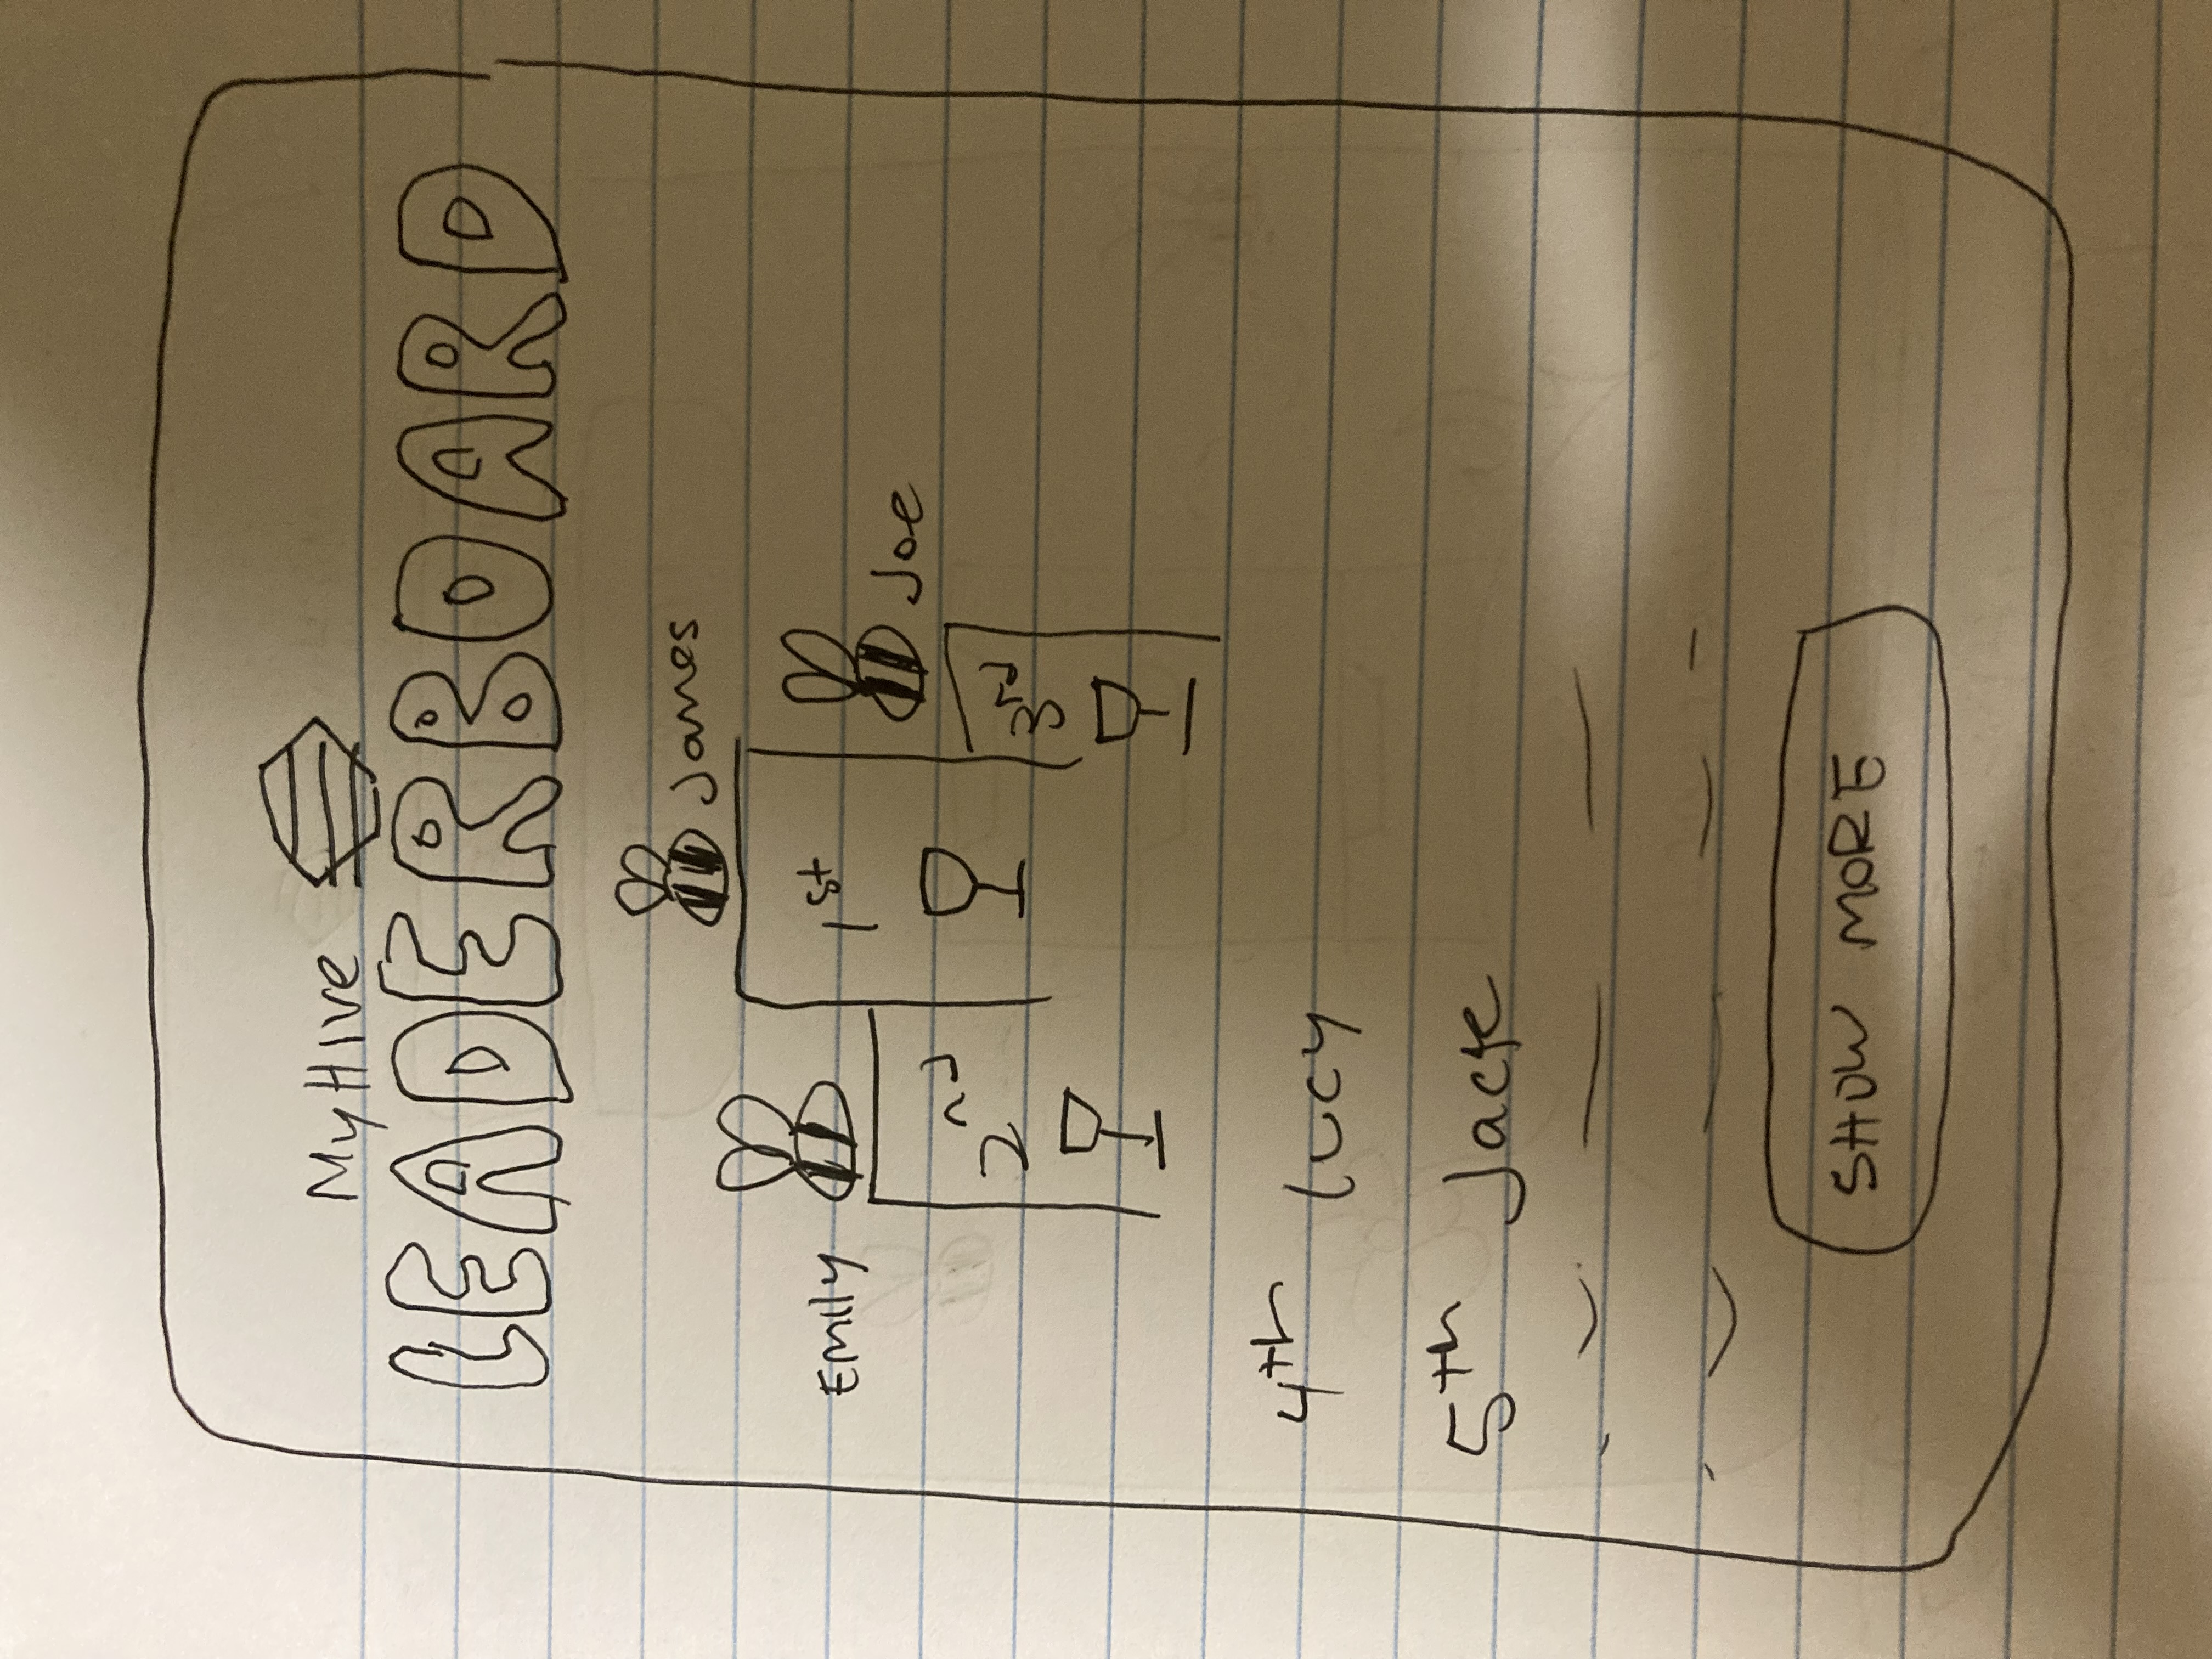 MyHive
LEADERBOARD
James
Emily
1st
Joe
2nd
3rd
4th Lucy
5th Jack
SHOW MORE